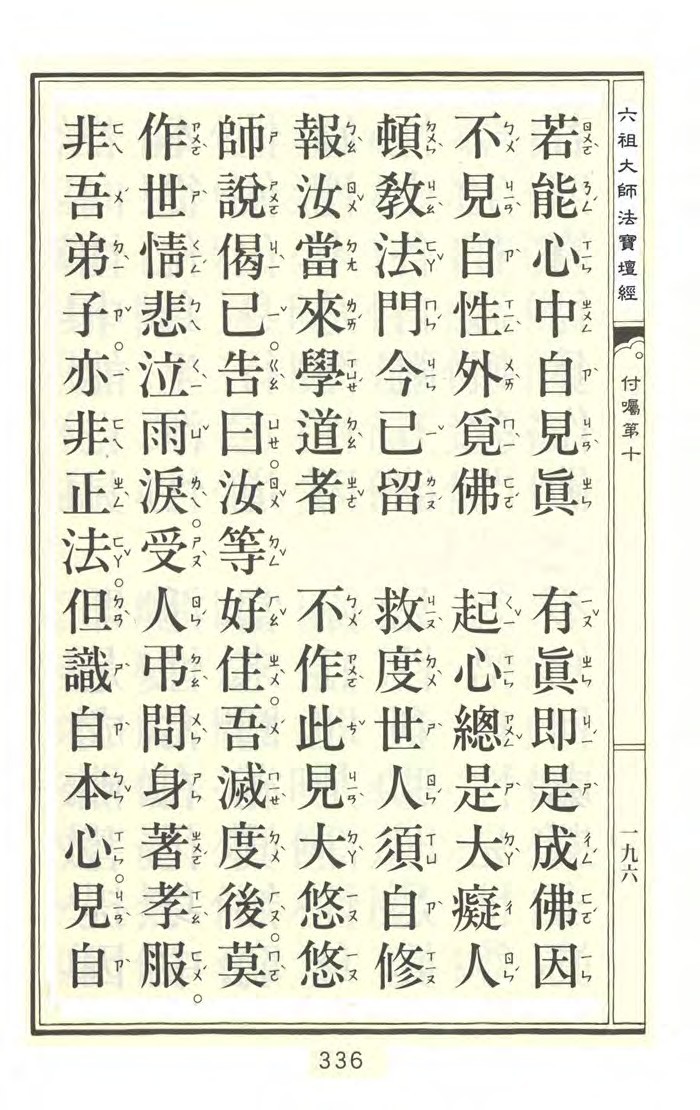 六祖大師法寶壇經
付囑第十
一九六
若能心中自見眞 有眞即是成佛因
不見自性外覓佛 起心總是大癡人
頓教法門今已留 救度世人須自修
報汝當來學道者 不作此見大悠悠
師說偈已。告曰。汝等好住。吾滅度後。莫
作世情悲泣雨淚。受人弔問。身著孝服。
非吾弟子。亦非正法。但識自本心。見自
336